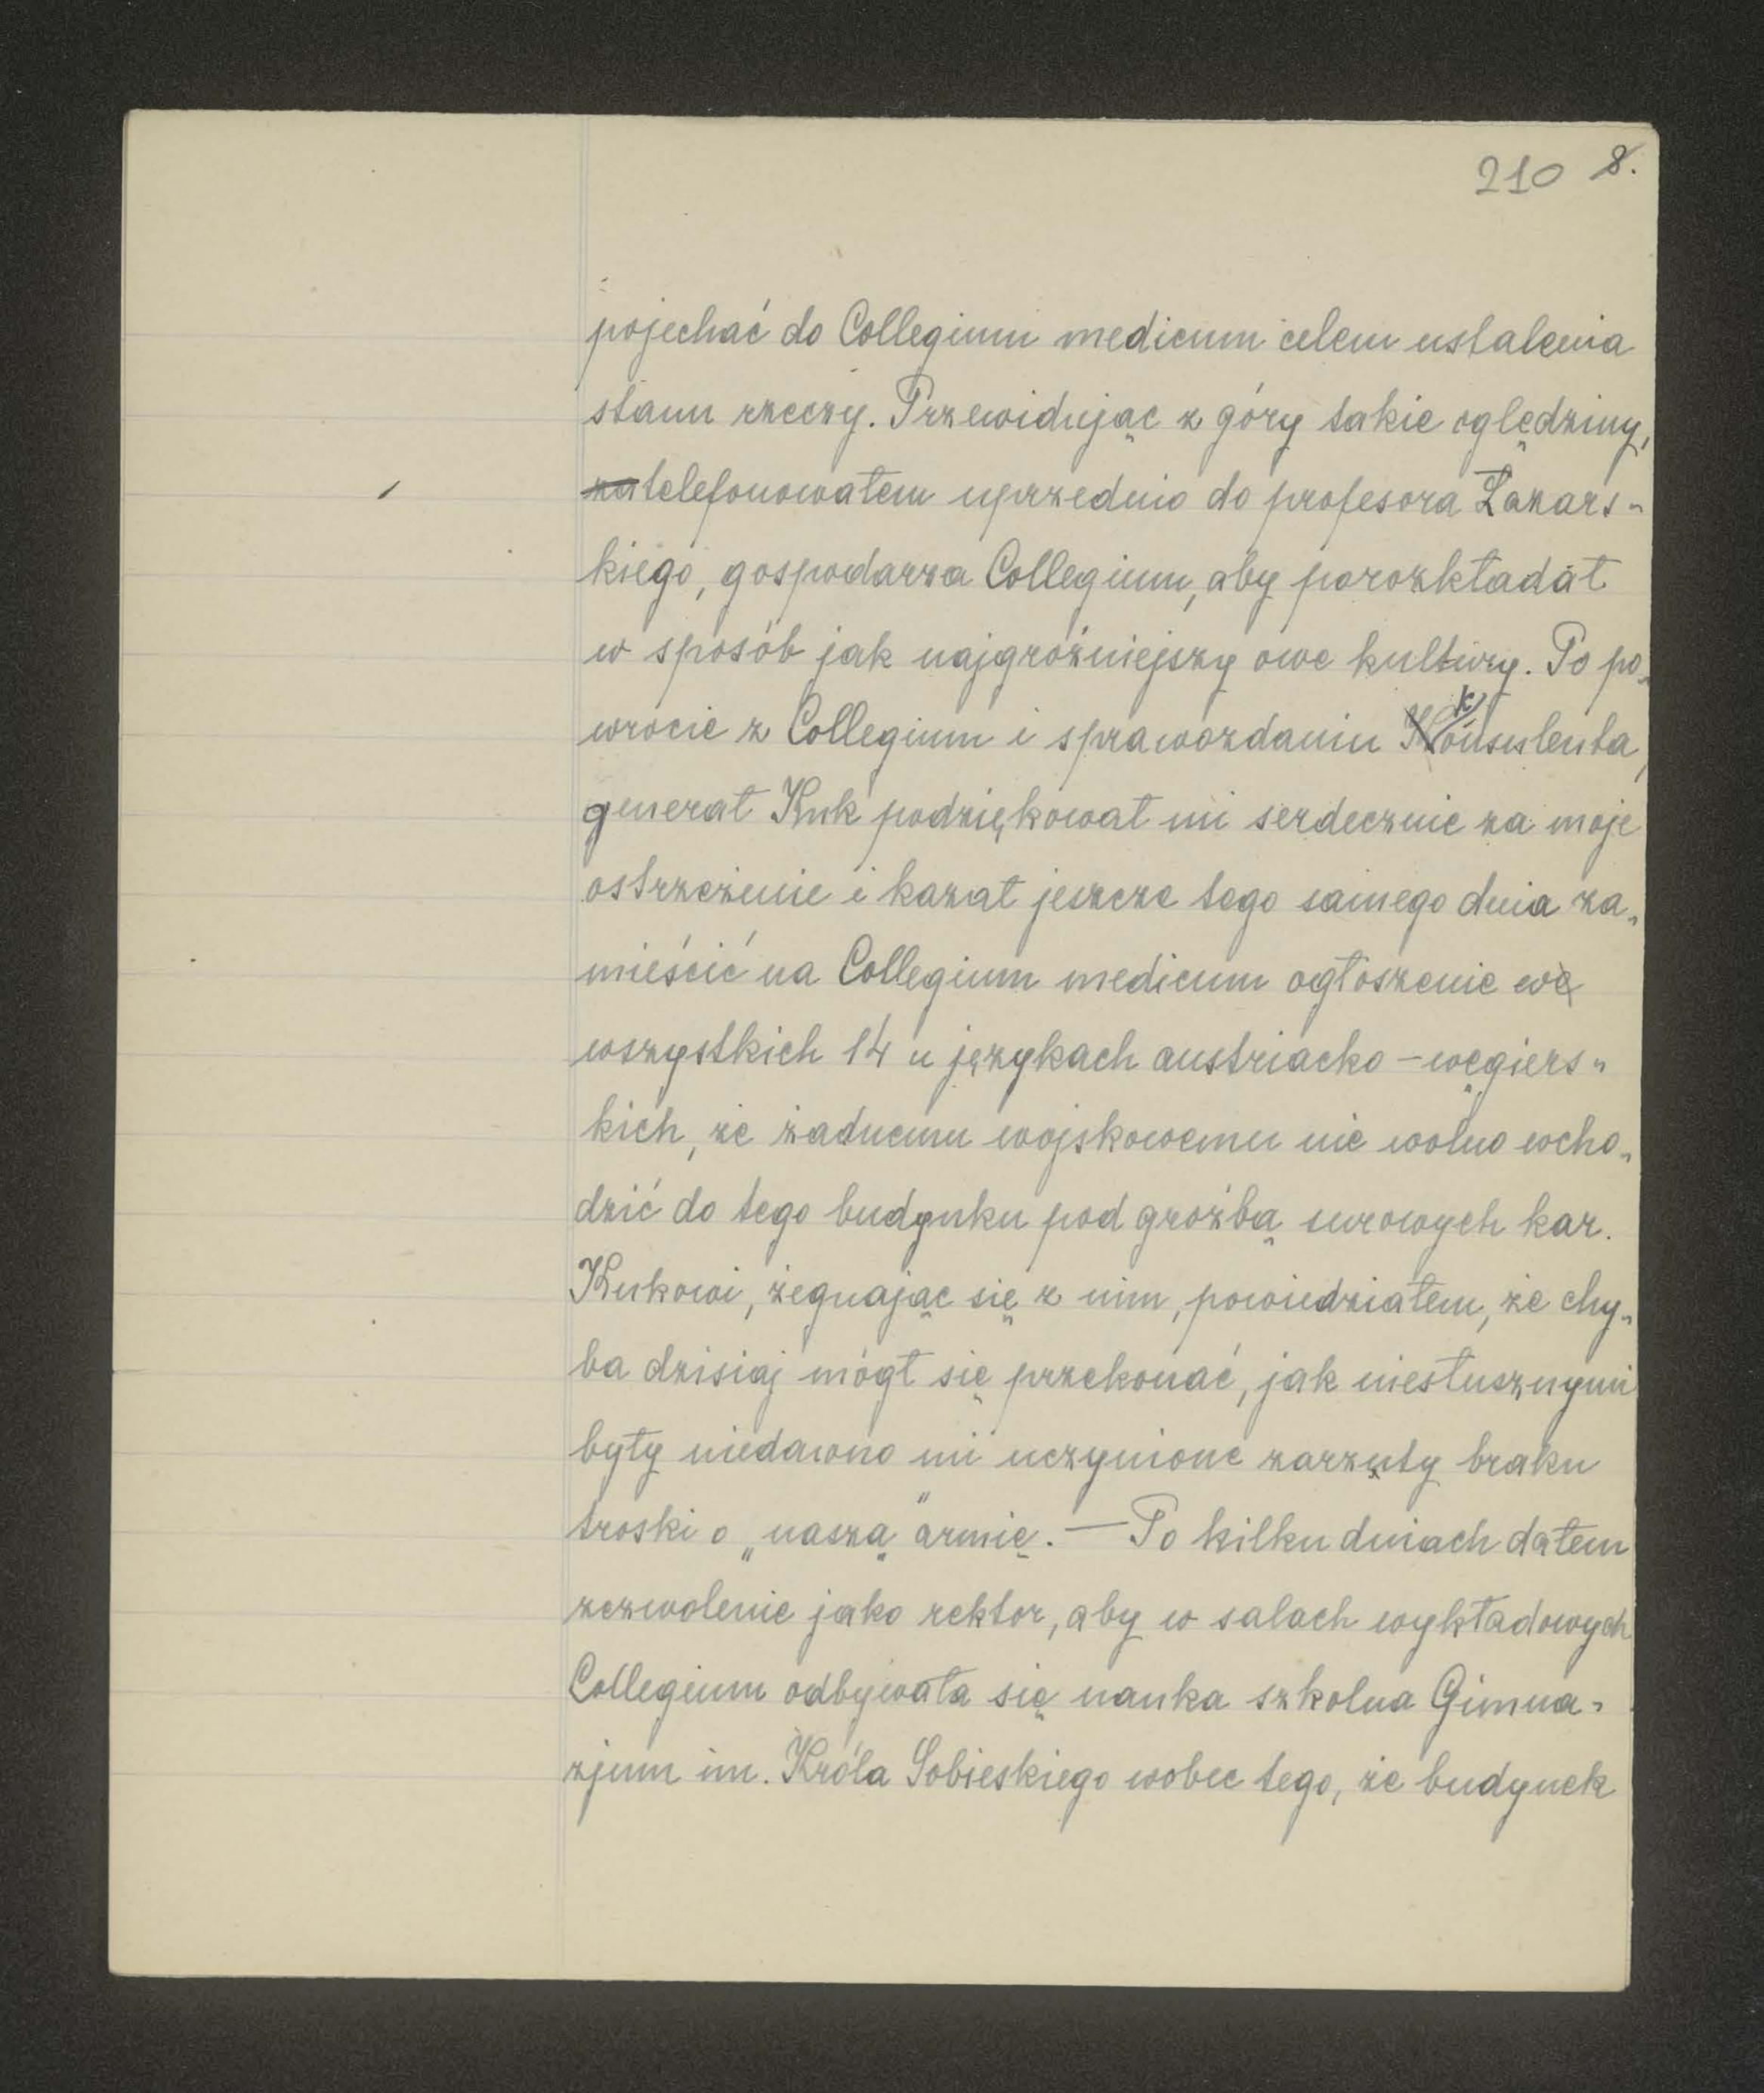 210 8.
pojechać do Collegium medicum celem ustalenia
stanu rzeczy. Przewidując z góry takie oględziny,
zatelefonowałem uprzednio do profesora Łazars-
kiego, gospodarza Collegium, aby porozkładał
w sposób jak najgroźniejszy owe kultury. Po po-
wrocie z Collegium i sprawozdaniu konsulenta,
generał Kuk podziękował mi serdecznie za moje
ostrzeżenie i kazał jeszcze tego samego dnia za-
mieścić na Collegium medicum ogłoszenie we
wszystkich 14 u językach austriacko – węgiers-
kich, że żadnemu wojskowemu nie wolno wcho-
dzić do tego budynku pod groźbą surowych kar.
Kukowi, żegnając się z nim, powiedziałem, że chy-
ba dzisiaj mógł się przekonać, jak niesłusznymi
były niedawno mi uczynione zarzuty braku
troski o „naszą" armię. — Po kilku dniach dałem
zezwolenie jako rektor, aby w salach wykładowych
Collegium odbywała się nauka szkolna Gimna-
zjum im. Króla Sobieskiego wobec tego, że budynek